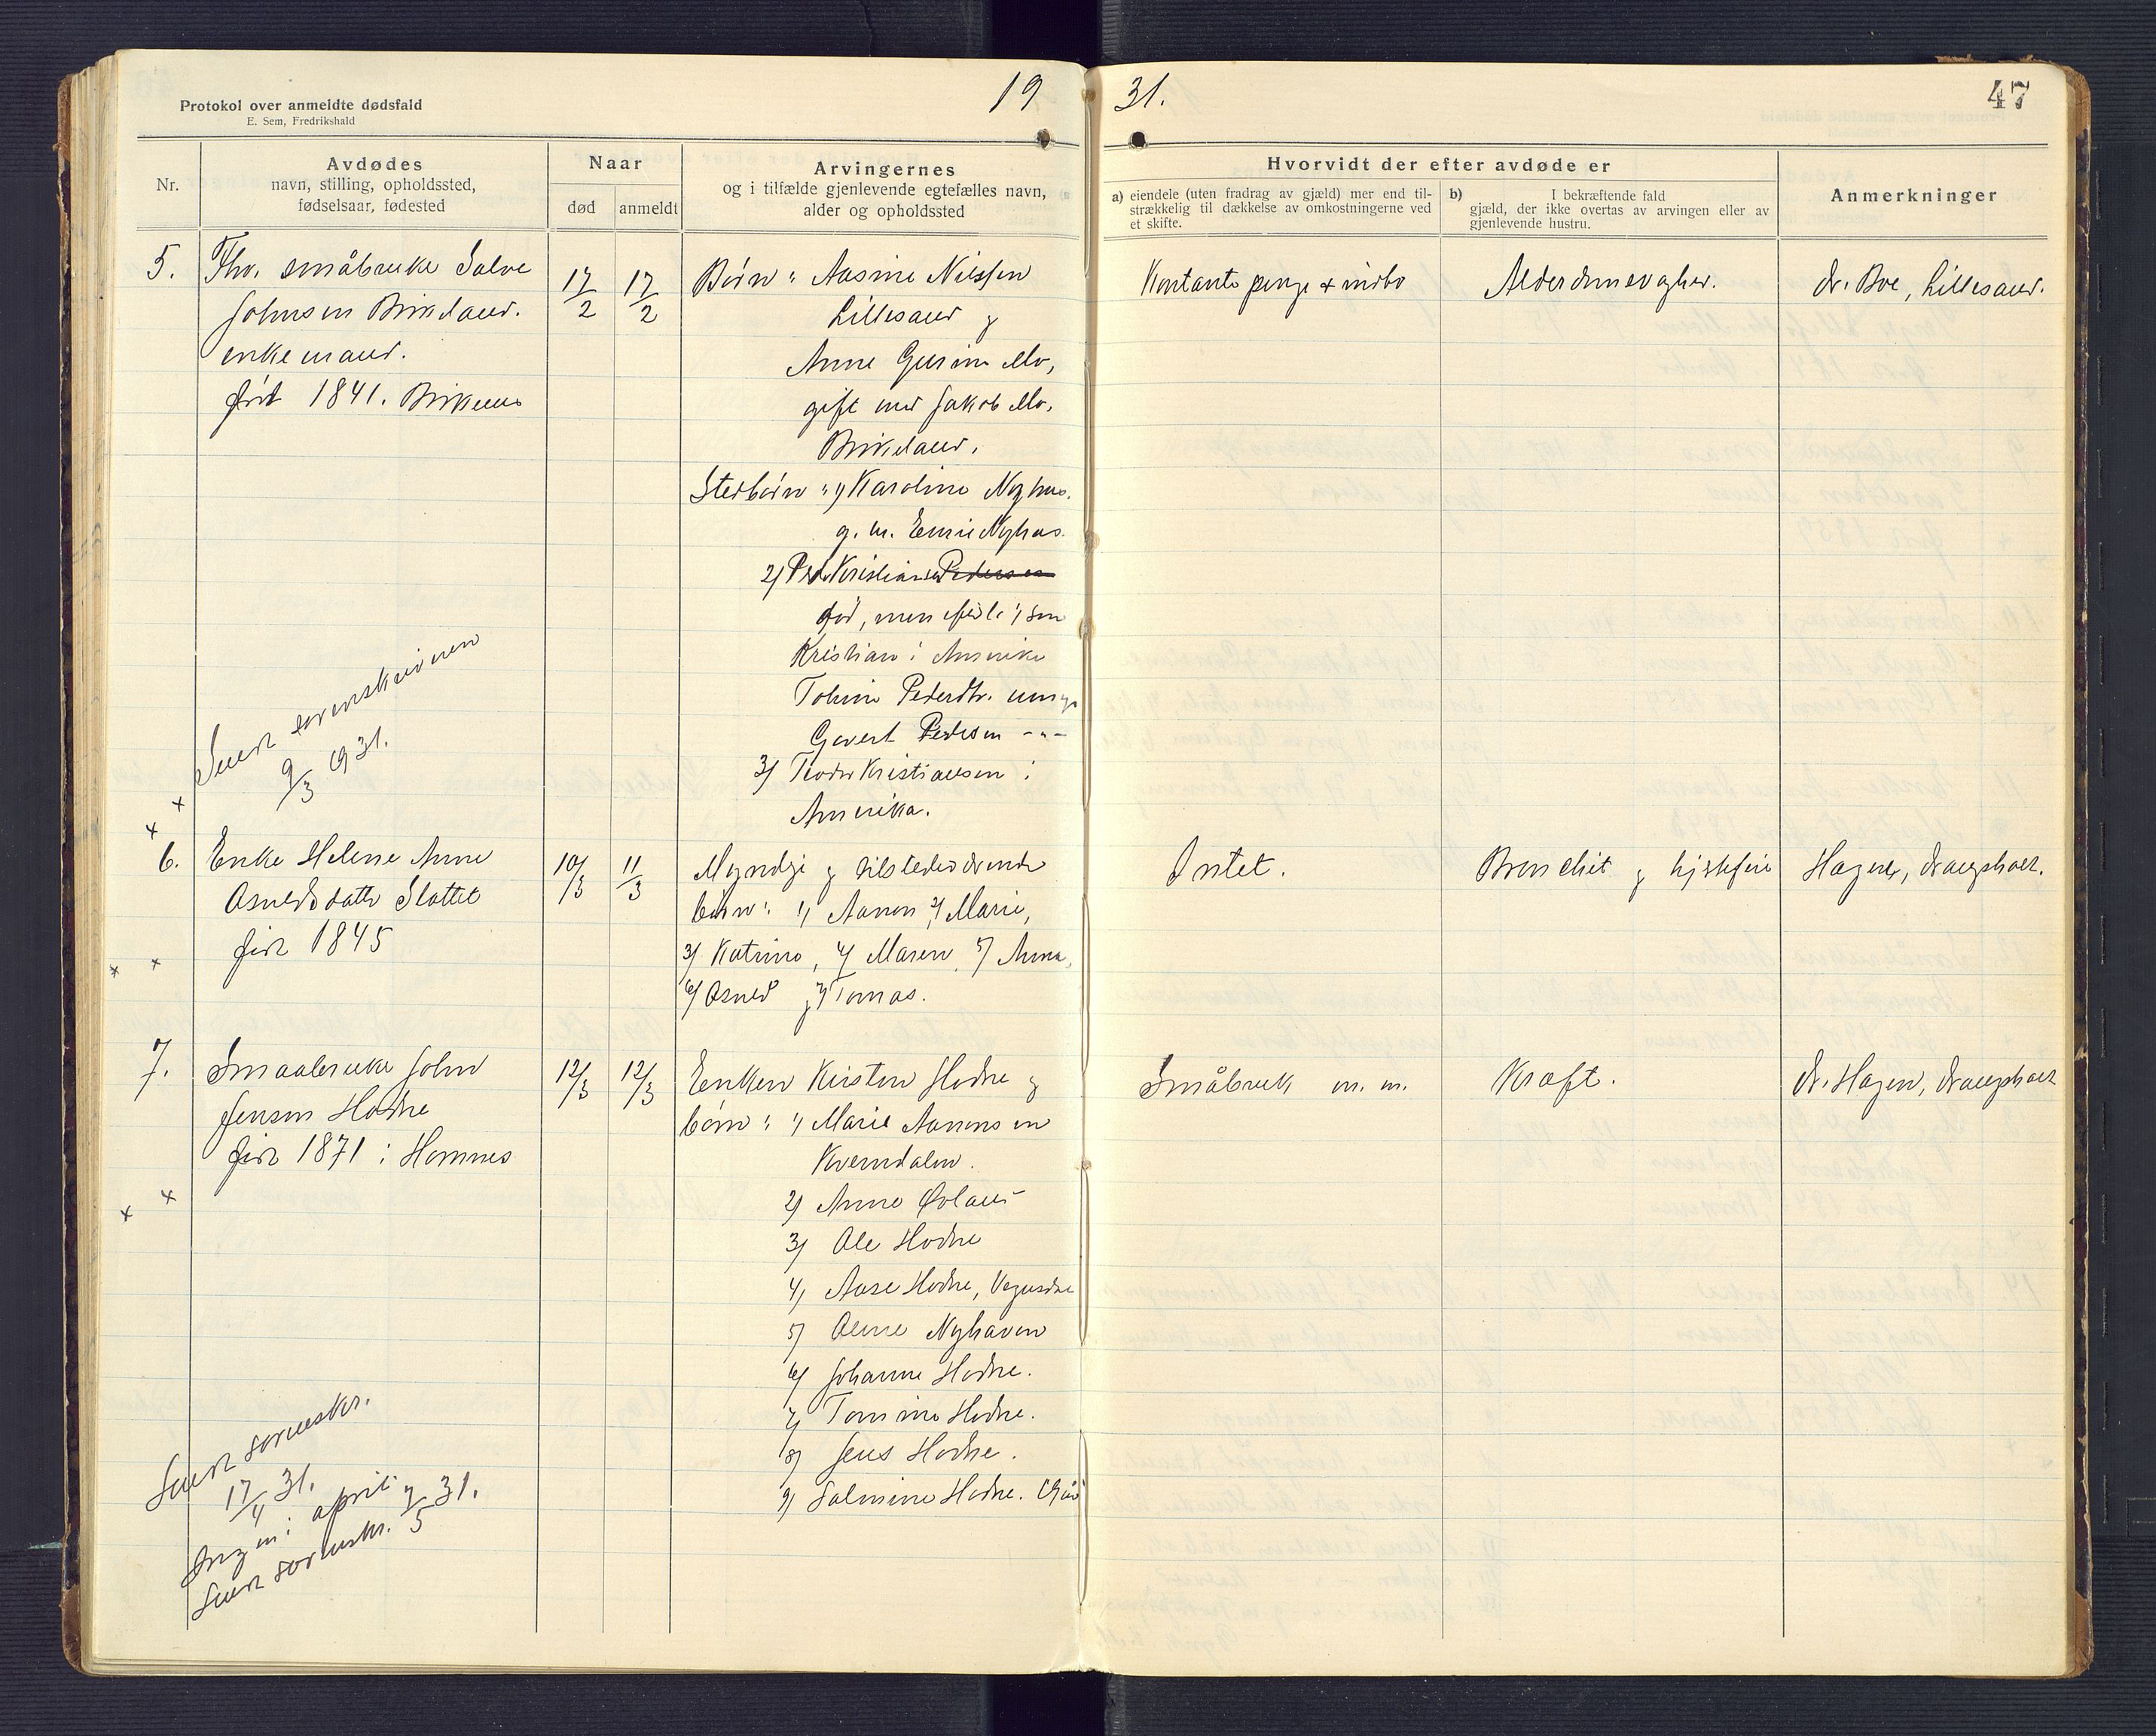 Protokol over anmeldte dødsfald
E. Sem, Fredrikshald
19 31.
47
Nr.
Avdødes
navn, stilling, opholdssted,
fødselsaar, fødested
Naar
død
anmeldt
Arvingernes
og i tilfælde gjenlevende egtefælles navn,
alder og opholdssted
Hvorvidt der efter avdøde er
a) eiendele (uten fradrag av gjæld) mer end til-
strækkelig til dækkelse av omkostningerne ved
et skifte.
b) I bekræftende fald
gjæld, der ikke overtas av arvingen eller av
gjenlevende hustru.
Anmerkninger
5.
Fhv. småbruke Salve
Johnsen Birkeland.
enkemand.
født 1841. Birkenes
17/2
17/2
Børn: Aasine Nilssen
Lillesand og
Anne Gurine Mo,
gift med Jakob Mo,
Birkeland.
Stedbørn: 1) Karoline Nyhus.
g. m. Nyhus.
2) Kristiansen Pedersen
død, men efterl. 1 søn
Kristian i Amerika
Pedersdtr. umyn
Govert Pedersen -"-
3) Kristiansen i
Amerika.
Kontante penge & indbo
Alderdomsvaghed.
dr. Boe, Lillesand.
Sendt sorenskriveren
9/3 1931.
6.
Enke Helene Anne
Osuldsdatter Slottet
født 1845
10/3
11/3
Myndige og tilstedeværende
børn: 1) Aanon 2) Marie,
3) Katrine, 4) Maren, 5) Anna,
6) Osuld og 7) Tomas.
Intet.
Bronchit og hjertefeil
Hagen, Drangsholt.
7.
Smaabruke John
Jensen Hodne
født 1871 i Hornnes
12/3
12/3
Enken Kirsten Hodne og
børn: 1) Marie Aanonsen
Kverndalen.
2) Anne
3) Ole Hodne
4) Aase Hodne, Vegusdal
5) Nyhaven
6) Johanne Hodne.
7) Tomine Hodne.
8) Jens Hodne.
9) Salmine Hodne.
Småbruk m. m.
Kræft.
dr. Hagen, Drangsholt
Sendt sorenskr.
17/4 31.
Ingen i april
Sendt sorenskr. 7/5 31.